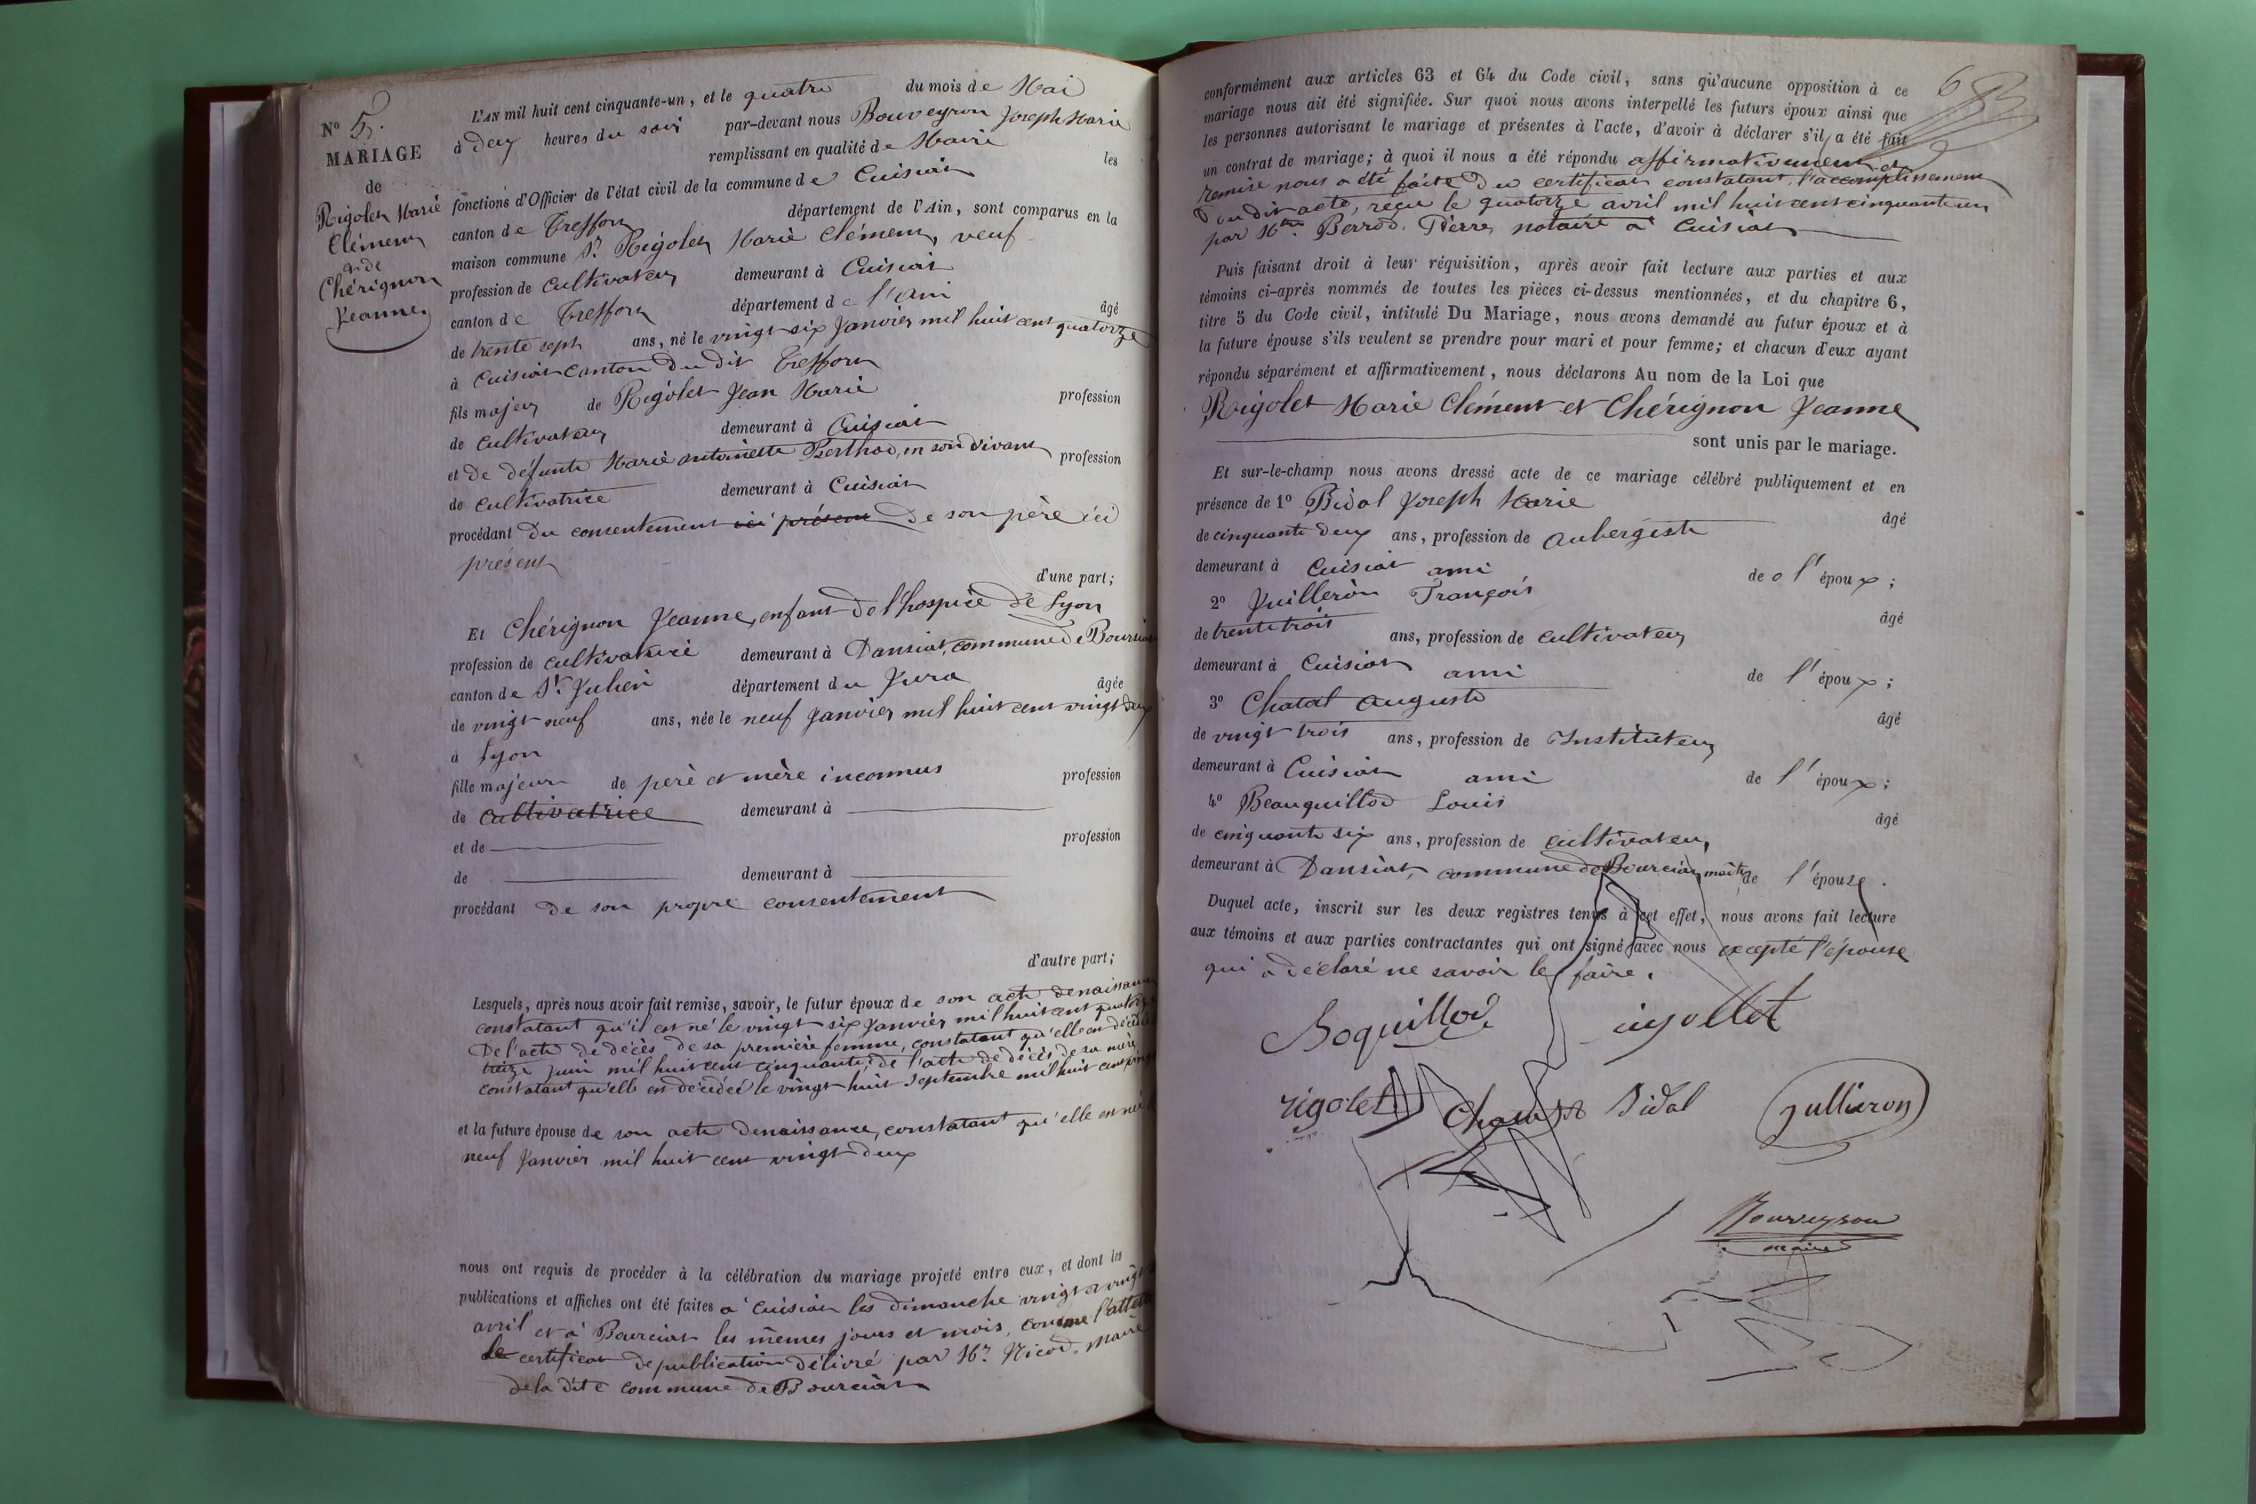 N° 5.
MARIAGE
de
Rigolet Marie
Clément
et de
Chérignon
Jeanne
L'AN mil huit cent cinquante-un, et le quatre du mois de Mai
à deux heures du soir par-devant nous Bouveyron Joseph Marie
remplissant en qualité de Maire les
fonctions d'Officier de l'état civil de la commune de Cuisiat
canton de Treffort département de l'Ain, sont comparus en la
maison commune Sr. Rigolet Marie Clément, veuf
profession de cultivateur demeurant à Cuisiat
canton de Treffort département de l'Ain âgé
de trente sept ans, né le vingt six Janvier mil huit cent quatorze
à Cuisiat canton du dit Treffort
fils majeur de Rigolet Jean Marie profession
de cultivateur demeurant à Cuisiat
et de défunte Marie antoinette Berthod, en son vivant profession
de cultivatrice demeurant à Cuisiat
procédant du consentement ici présent de son père ici
présent
d'une part;
Et Chérignon Jeanne, enfant de l'hospice de Lyon
profession de cultivatrice demeurant à Dansiat, commune de Bourciat
canton de St. Julien département du Jura âgée
de vingt neuf ans, née le neuf Janvier mil huit cent vingt deux
à Lyon
fille majeure de père et mère inconnus profession
de cultivatrice demeurant à
et de profession
de demeurant à
procédant de son propre consentement
d'autre part;
Lesquels, après nous avoir fait remise, savoir, le futur époux de son acte de naissance
constatant qu'il est né le vingt six Janvier mil huit cent quatorze
De l'acte de décès de sa première femme, constatant qu'elle est décédée
treize juin mil huit cent cinquante; de l'acte de décès de sa mère
constatant qu'elle est décédée le vingt huit Septembre mil huit cent
et la future épouse de son acte de naissance, constatant qu'elle est née
neuf Janvier mil huit cent vingt deux
nous ont requis de procéder à la célébration du mariage projeté entre eux, et dont les
publications et affiches ont été faites à Cuisiat les dimanche vingt et vingt
avril et à Bourciat les mêmes jours et mois, comme l'atteste
le certificat de publication délivré par Mr. Nicod, maire
de la dite commune de Bourciat
conformément aux articles 63 et 64 du Code civil, sans qu'aucune opposition à ce
mariage nous ait été signifiée. Sur quoi nous avons interpellé les futurs époux ainsi que
les personnes autorisant le mariage et présentes à l'acte, d'avoir à déclarer s'il a été fait
un contrat de mariage; à quoi il nous a été répondu affirmativement et
remise nous a été faite du certificat constatant l'accomplissement
du dit acte, reçu le quatorze avril mil huit cent cinquante un
par Mtre. Berrod, Pierre, notaire à Cuisiat
Puis faisant droit à leur réquisition, après avoir fait lecture aux parties et aux
témoins ci-après nommés de toutes les pièces ci-dessus mentionnées, et du chapitre 6,
titre 5 du Code civil, intitulé Du Mariage, nous avons demandé au futur époux et à
la future épouse s'ils veulent se prendre pour mari et pour femme; et chacun d'eux ayant
répondu séparément et affirmativement, nous déclarons Au nom de la Loi que
Rigolet Marie Clément et Chérignon Jeanne
sont unis par le mariage.
Et sur-le-champ nous avons dressé acte de ce mariage célébré publiquement et en
présence de 1° Bidal Joseph Marie âgé
de cinquante deux ans, profession de aubergiste
demeurant à Cuisiat ami de l'époux;
2° Juilleron François âgé
de trente trois ans, profession de cultivateur
demeurant à Cuisiat ami de l'époux;
3° Chatal auguste âgé
de vingt trois ans, profession de Instituteur
demeurant à Cuisiat ami de l'époux;
4° Beauquillod Louis âgé
de cinquante six ans, profession de cultivateur,
demeurant à Dansiat, commune de Bourciat, maître de l'épouse.
Duquel acte, inscrit sur les deux registres tenus à cet effet, nous avons fait lecture
aux témoins et aux parties contractantes qui ont signé avec nous excepté l'épouse
qui a déclaré ne savoir le faire.
Boquillod rigollet
rigolet Chatal Bidal jullieron
Bouveyron
maire